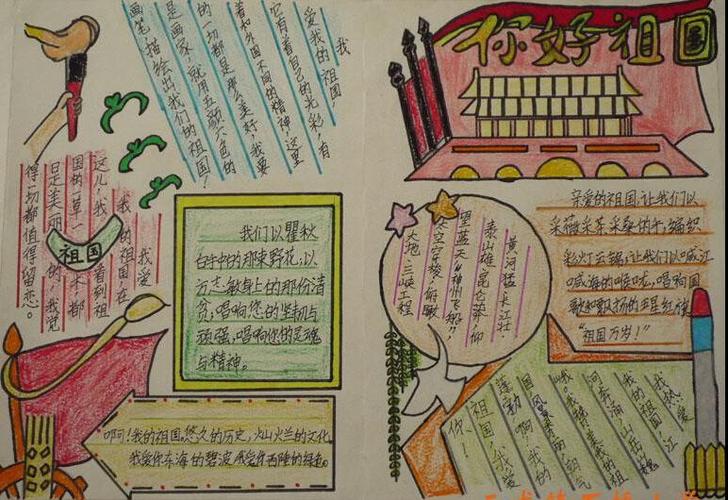 你好祖国
我
爱我的祖国
它有着自己的光彩,有
着和外国不同的精神,这里
的一切都是那么美好,我要
是画家,就用五颜六色的
画笔,描绘出我们的祖国!
我爱
我的祖国,在
这儿,我看到祖
国的一草一木都
是美丽的,我觉
得一切都值得留恋。
祖国
我们以瞿秋
白牢中的那束野花;以
方志敏身上的那份清
贫,唱响您的坚韧与
顽强,唱响你的灵魂
与精神。
啊!我的祖国,悠久的历史,火山火兰的文化,
我爱你东海的碧波,我爱你西陲的绿色。
黄河猛,长江壮,
泰山雄,昆仑莽,仰
望蓝天,"神州飞船"
太空穿梭,俯瞰
大地,三峡工程
亲爱的祖国,让我们以
采薇采茶采桑的手,编织
彩灯云锦;让我们以喊江
喊海的喉咙,唱响国
歌和飘扬的五星红旗
"祖国万岁!"
我热爱
我的祖国,江
河奔涌,山岳巍
峨,我赞美我的祖
国,风景秀丽,朝气
蓬勃,啊,我的
祖国,我爱
你!